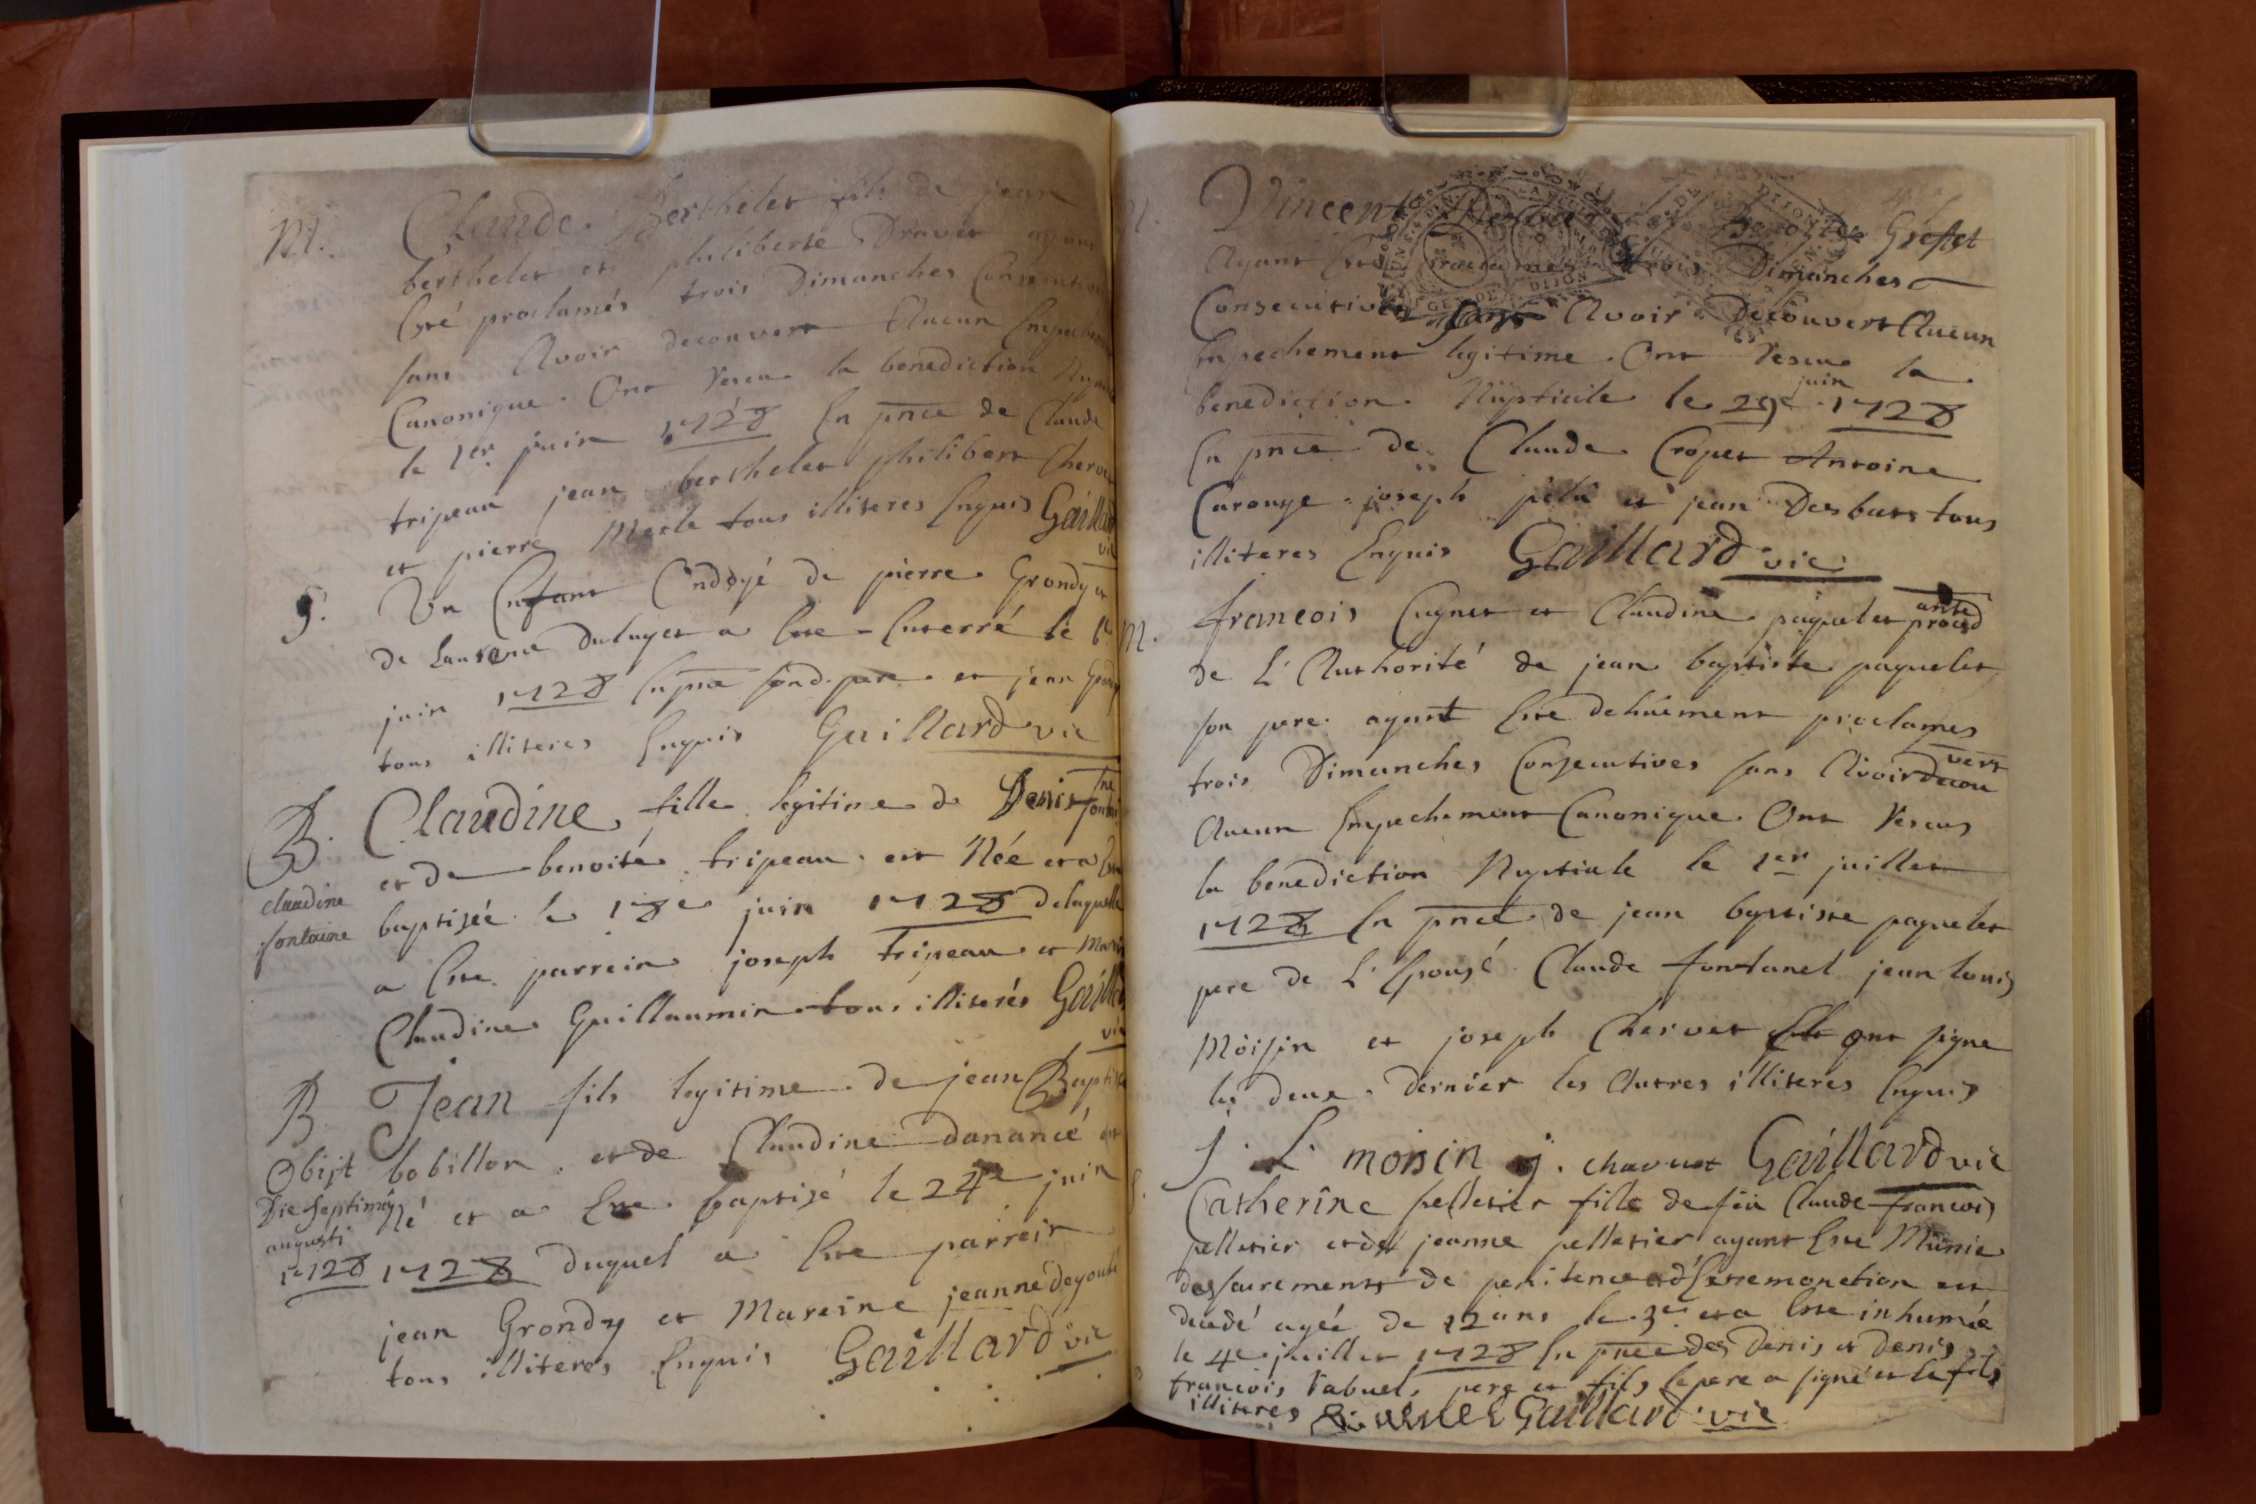 M. Claude Berthelet fils de jean
berthelet et philiberte Dravet ayant
Esté proclamés trois Dimanches Consecutives
sans Avoir decouvert Aucun Empechement
Canonique. Ont Reseu la benediction
le 1er juin 1728 En pnce de Claude
tripeau jean berthelet philibert Chervet
et pierre Merle tous illiteres Enquis Gaillard
vic
S. Un Enfant Endoyé de pierre Grondy et
de Laurence Duluyet a Este Enterré le
juin 1728 pere et jean Grondy
tous illiteres Enquis Gaillard vic
B. Claudine fille legitime de Denis fontaine
claudine
fontaine
et de benoite tripeau est Née et a Este
baptisée le 18e juin 1728 de laquelle
a Este parrein joseph tripeau et
Claudine Guillaumin tous illiterés Gaillard
vic
B Jean fils legitime de jean Baptiste
Obijt
Die septima
augusti
1728
bobillon et de Claudine danancé est
Né et a Este baptisé le 24e juin
1728 Duquel a Este parrein
jean Grondy et Mareine jeanne
tous illiteres Enquis Gaillard vic
Vincent Benoite Greffet
Ayant Esté proclames trois Dimanches
Consecutives sans Avoir Decouvert Aucun
Enpechement legitime. Ont Reseu la
benediction Nuptiale le 29e juin 1728
En pnce de Claude Cropet Antoine
Carouge joseph pelu et jean Desbats tous
illiteres Enquis Gaillard vic
M. francois Cugnet et Claudine paquelet proced ante
de L'Authorité de jean baptiste paquelet
son pere ayant Este dehüement proclames
trois Dimanches Consecutives sans Avoir decou vert
Aucun Empechement Canonique Ont Reseus
la benediction Nuptiale le 1er juillet
1728 En pnce de jean baptiste paquelet
pere de L'Epousé Claude fontanel jean louis
Moisin et joseph Chervet ont signe
les deux dernier les Autres illiteres Enquis
J. L. moisin j. chavuet Gaillard vic
Catherine pelletier fille de feu Claude francois
pelletier et de jeanne pelletier ayant Este Munie
des sacrements de penitence et d'Extremonction est
decedé agée de 12 ans le 3e et a Este inhumée
le 4e juillet 1728 En pnce des Denis et Denis
francois Vabuel pere et fils le pere a signé et le fils
illiteres Gaillard vic